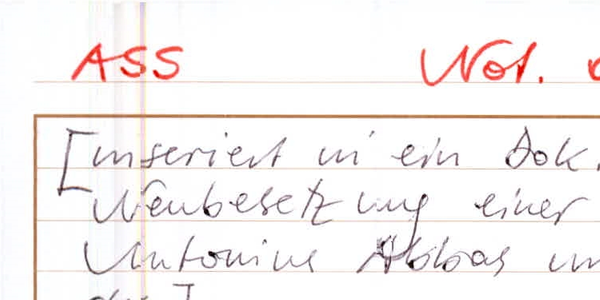 ASS Not.
[inseriert in ein Dok.
Neubesetzung einer
Antonius Abbas